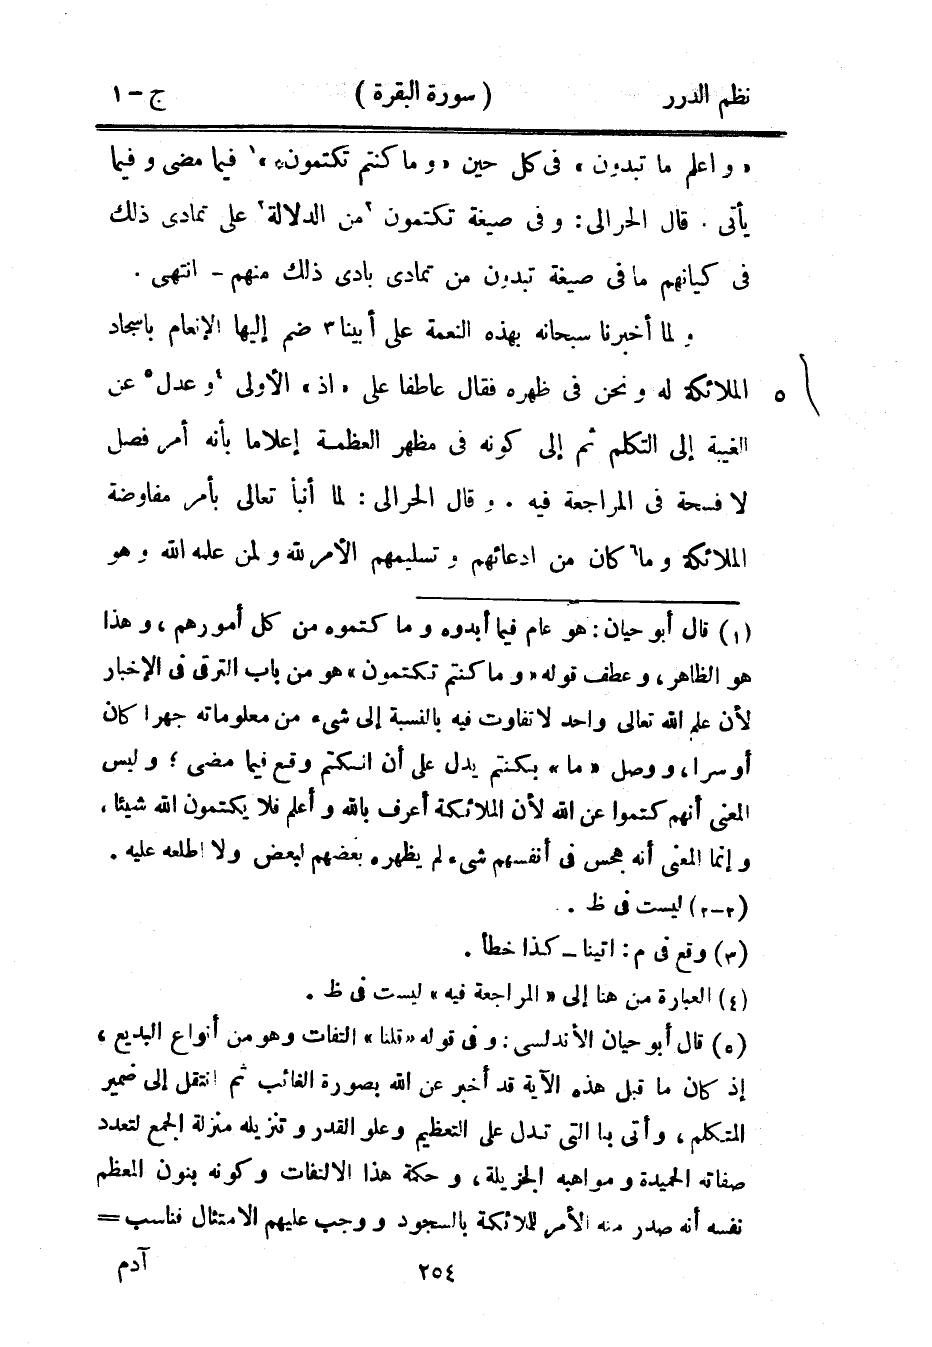 نظم الدرر ( سورة البقرة ) ج - ١
« و اعلم ما تبدون » فى كل حين « و ما كنتم تكتمون » ١ فيما مضى و فيما
يأتى . قال الحرالى : و فى صيغة تكتمون ٢من الدلالة٢ على تمادى ذلك
فى كيانهم ما فى صيغة تبدون من تمادى بادى ذلك منهم - انتهى .
و لما أخبرنا سبحانه بهذه النعمة على أبينا٣ ضم إليها الإنعام باسجاد
الملائكة له و نحن فى ظهره فقال عاطفا على « اذ » الأولى ٤و عدل٥ عن ٥
الغيبة إلى التكلم ثم إلى كونه فى مظهر العظمة إعلاما بأنه أمر فصل
لا فسحة فى المراجعة فيه . و قال الحرالى : لما أنبأ تعالى بأمر مفاوضة
الملائكة و ما٦ كان من ادعائهم و تسليمهم الأمر لله و لمن علمه الله و هو
(١) قال أبو حيان : هو عام فيما أبدوه و ما كتموه من كل أمورهم ، و هذا
هو الظاهر ، و عطف قوله « و ما كنتم تكتمون » هو من باب الترقى فى الإخبار
لأن علم الله تعالى واحد لا تفاوت فيه بالنسبة إلى شىء من معلوماته جهرا كان
أو سرا ، و وصل « ما » بكنتم يدل على أن الكتم وقع فيما مضى ؛ و ليس
المعنى أنهم كتموا عن الله لأن الملائكة أعرف بالله و أعلم فلا يكتمون الله شيئا ،
و إنما المعنى أنه هجس فى أنفسهم شىء لم يظهره بعضهم لبعض ولا اطلعه عليه .
(٢-٢) ليست فى ظ .
(٣) وقع فى م : اتينا - كذا خطأ .
(٤) العبارة من هنا إلى « المراجعة فيه » ليست فى ظ .
(٥) قال أبو حيان الأندلسى : و فى قوله « قلنا » التفات وهو من أنواع البديع ،
إذ كان ما قبل هذه الآية قد أخبر عن الله بصورة الغائب ثم انتقل إلى ضمير
المتكلم ، و أتى بنا التى تدل على التعظيم و علو القدر و تنزيله منزلة الجمع لتعدد
صفاته الحميدة و مواهبه الجزيلة ، و حكمة هذا الالتفات و كونه بنون المعظم
نفسه أنه صدر منه الأمر للملائكة بالسجود و وجب عليهم الامتثال فناسب =
آدم
٢٥٤